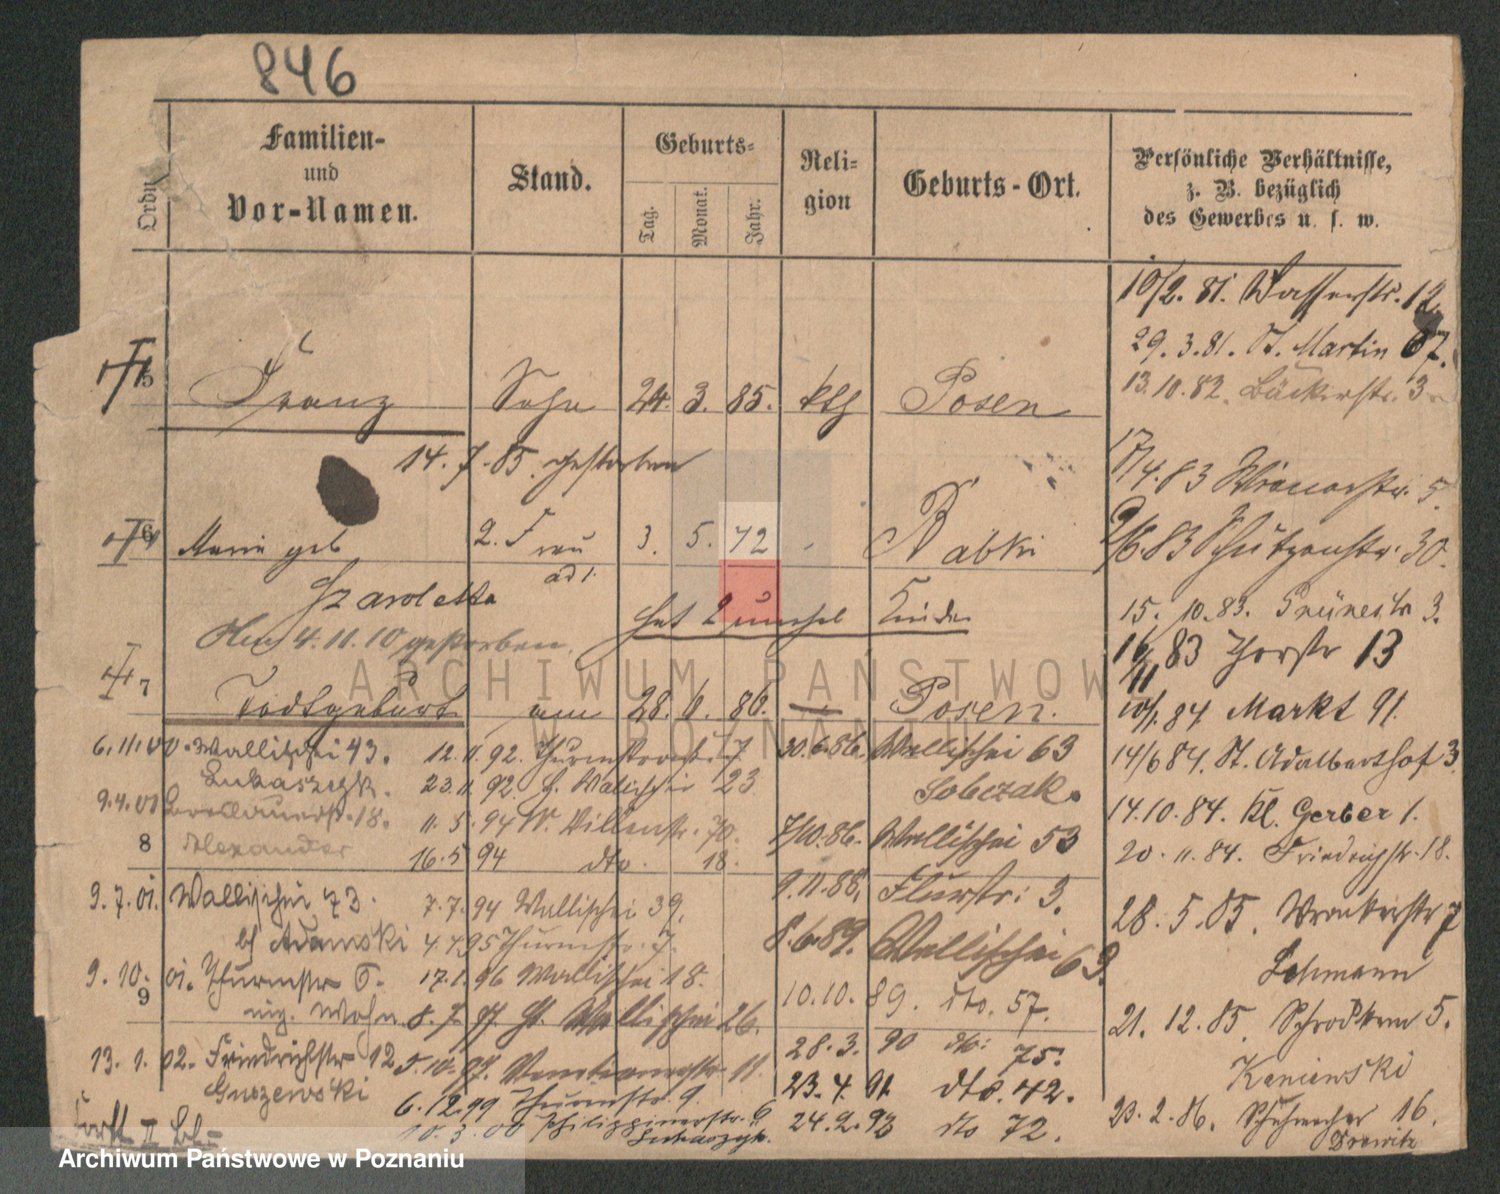 846
Ordn
Familien-
und
Vor-Namen.
Stand.
Geburts-
Tag.
Monat.
Jahr.
Reli-
gion
Geburts-Ort.
Persönliche Verhältnisse,
z. B. bezüglich
des Gewerbes u. s. w.
10/2. 81. Wasserstr. 12.
29. 3. 81. St. Martin 67.
13. 10. 82. Bäckerstr. 3
5 Franz Sohn 24. 3. 85. kth Posen
14. 7. 85. gestorben
17/4. 83 Wienerstr. 5.
6 Marie geb 2. Frau 3. 5. 72 Rabki
ad 1.
9/6. 83 Schützenstr. 30.
hat 2 unehel Kinder
15. 10. 83. Grünestr 3.
4. 11. 10 gestorben.
16/11 83 Thorstr 13
7 Todtgeburt am 28. 6. 86. — Posen.
10/1. 84 Markt 91.
6. 11. 00. Wallischei 43.
12. 11. 92. Thurmstr. 7
30. 6. 86. Wallischei 63
14/6 84. St. Adalberthof 3.
Lukaszegk.
23. 11. 92. Wallischei 23
Sobczak.
9. 4. 01 Breslauerstr. 18.
14. 10. 84. Kl. Gerber 1.
11. 5. 94 St. 70.
7/10. 86. Wallischei 53
8 Alexander
16. 5 94 dto. 18.
20. 11. 84. Friedrichstr. 18.
9. 7. 01. Wallischei 73.
7. 7. 94 Wallischei 39.
9. 11. 88. Flurstr. 3.
28. 5. 85. Wronkerstr 7
b/ Adamski
4. 4. 95 Thurmstr. 7.
8. 6. 89. Wallischei 63.
Lehmann
9. 10. 01. Thurmstr 5.
17. 1. 96 Wallischei 18.
9
eig. Wohn.
8. 7. 97. Wallischei 26.
10. 10. 89. dto. 57.
21. 12. 85. Schrodkem 5.
13. 1. 02. Friedrichstr 12
5. 10. 97. Venetianerstr. 11.
28. 3. 90 dto: 75.
Kaniewski
Guszewski
6. 12. 99 Thurmstr. 9.
23. 4. 91. dto. 42.
10. 3. 00 Philippinerstr. 6
Lukaszyk.
24. 2. 92 dto 72.
20. 2. 86. Schuhmacher 16.
Drewitz
ARCHIWUM PAŃSTWOWE
W POZNANIU
Archiwum Państwowe w Poznaniu